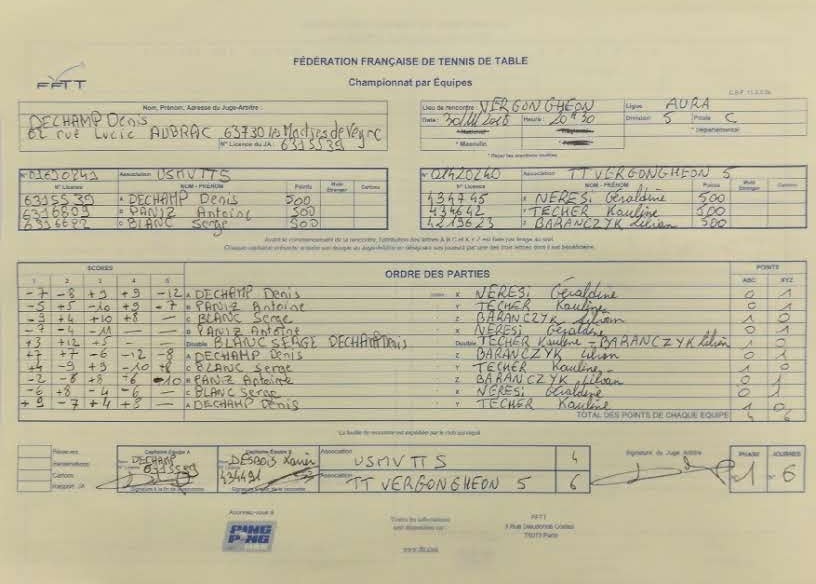 FÉDÉRATION FRANÇAISE DE TENNIS DE TABLE
FFTT
Championnat par Équipes
Nom, Prénom, Adresse du Juge-Arbitre :
DECHAMP Denis
62 rue Lucie AUBRAC 63730 les Martres de Veyre
N° Licence du JA : 6315539
Lieu de rencontre : VERGONGHEON Ligue AURA
Date : Heure : 20H30 Division 5 Poule C
* Départemental
* Masculin
* Rayer les mentions inutiles
Association USMVTTS
N° Licence NOM - PRÉNOM Points Muté Etranger Cartons
6315539 A DECHAMP Denis 500
6316809 B PANIZ Antoine 500
C BLANC Serge 500
N° 01420240 Association TT VERGONGHEON 5
N° Licence NOM - PRÉNOM Points Muté Etranger Cartons
434745 X NERESI Géraldine 500
434642 Y TECHER Kauline 500
4219623 Z BARANCZYK Lilian 500
SCORES ORDRE DES PARTIES POINTS
1 2 3 4 5 ABC XYZ
-7 -8 +9 +9 -12 A DECHAMP Denis X NERESI Géraldine 0 1
-5 +5 -10 +9 -7 B PANIZ Antoine Y TECHER Kauline 0 1
-9 +4 +10 +8 — C BLANC Serge Z BARANCZYK Lilian 1 0
-7 -4 -11 — — B PANIZ Antoine X NERESI Géraldine 0 1
+3 +12 +5 — — Double BLANC SERGE DECHAMP Denis Double TECHER Kauline - BARANCZYK Lilian 1 0
+7 +7 -6 -12 -8 A DECHAMP Denis Z BARANCZYK Lilian 0 1
+4 -9 +9 -10 +8 C BLANC Serge Y TECHER Kauline 1 0
-2 -8 +8 -6 -10 B PANIZ Antoine Z BARANCZYK Lilian 0 1
-6 +8 -4 -6 — C BLANC Serge X NERESI Géraldine 0 1
+9 -7 +4 +8 — A DECHAMP Denis Y TECHER Kauline 1 0
TOTAL DES POINTS DE CHAQUE EQUIPE 4 6
La feuille de rencontre est expédiée par le club
Réserves
Réclamations
Cartons
Rapport JA
Capitaine Équipe A
DECHAMP
6315539
Capitaine Équipe B
DESBOIS Xavier
434491
Association USMVTTS 4
Association TT VERGONGHEON 5 6
Signature du Juge Arbitre
PHASE JOURNÉE
N° 1 N° 6
Abonnez-vous à
PING PONG
Toutes les informations
sont disponibles sur :
www.fftt.com
FFTT
3 Rue Dieudonné Costes
75013 Paris